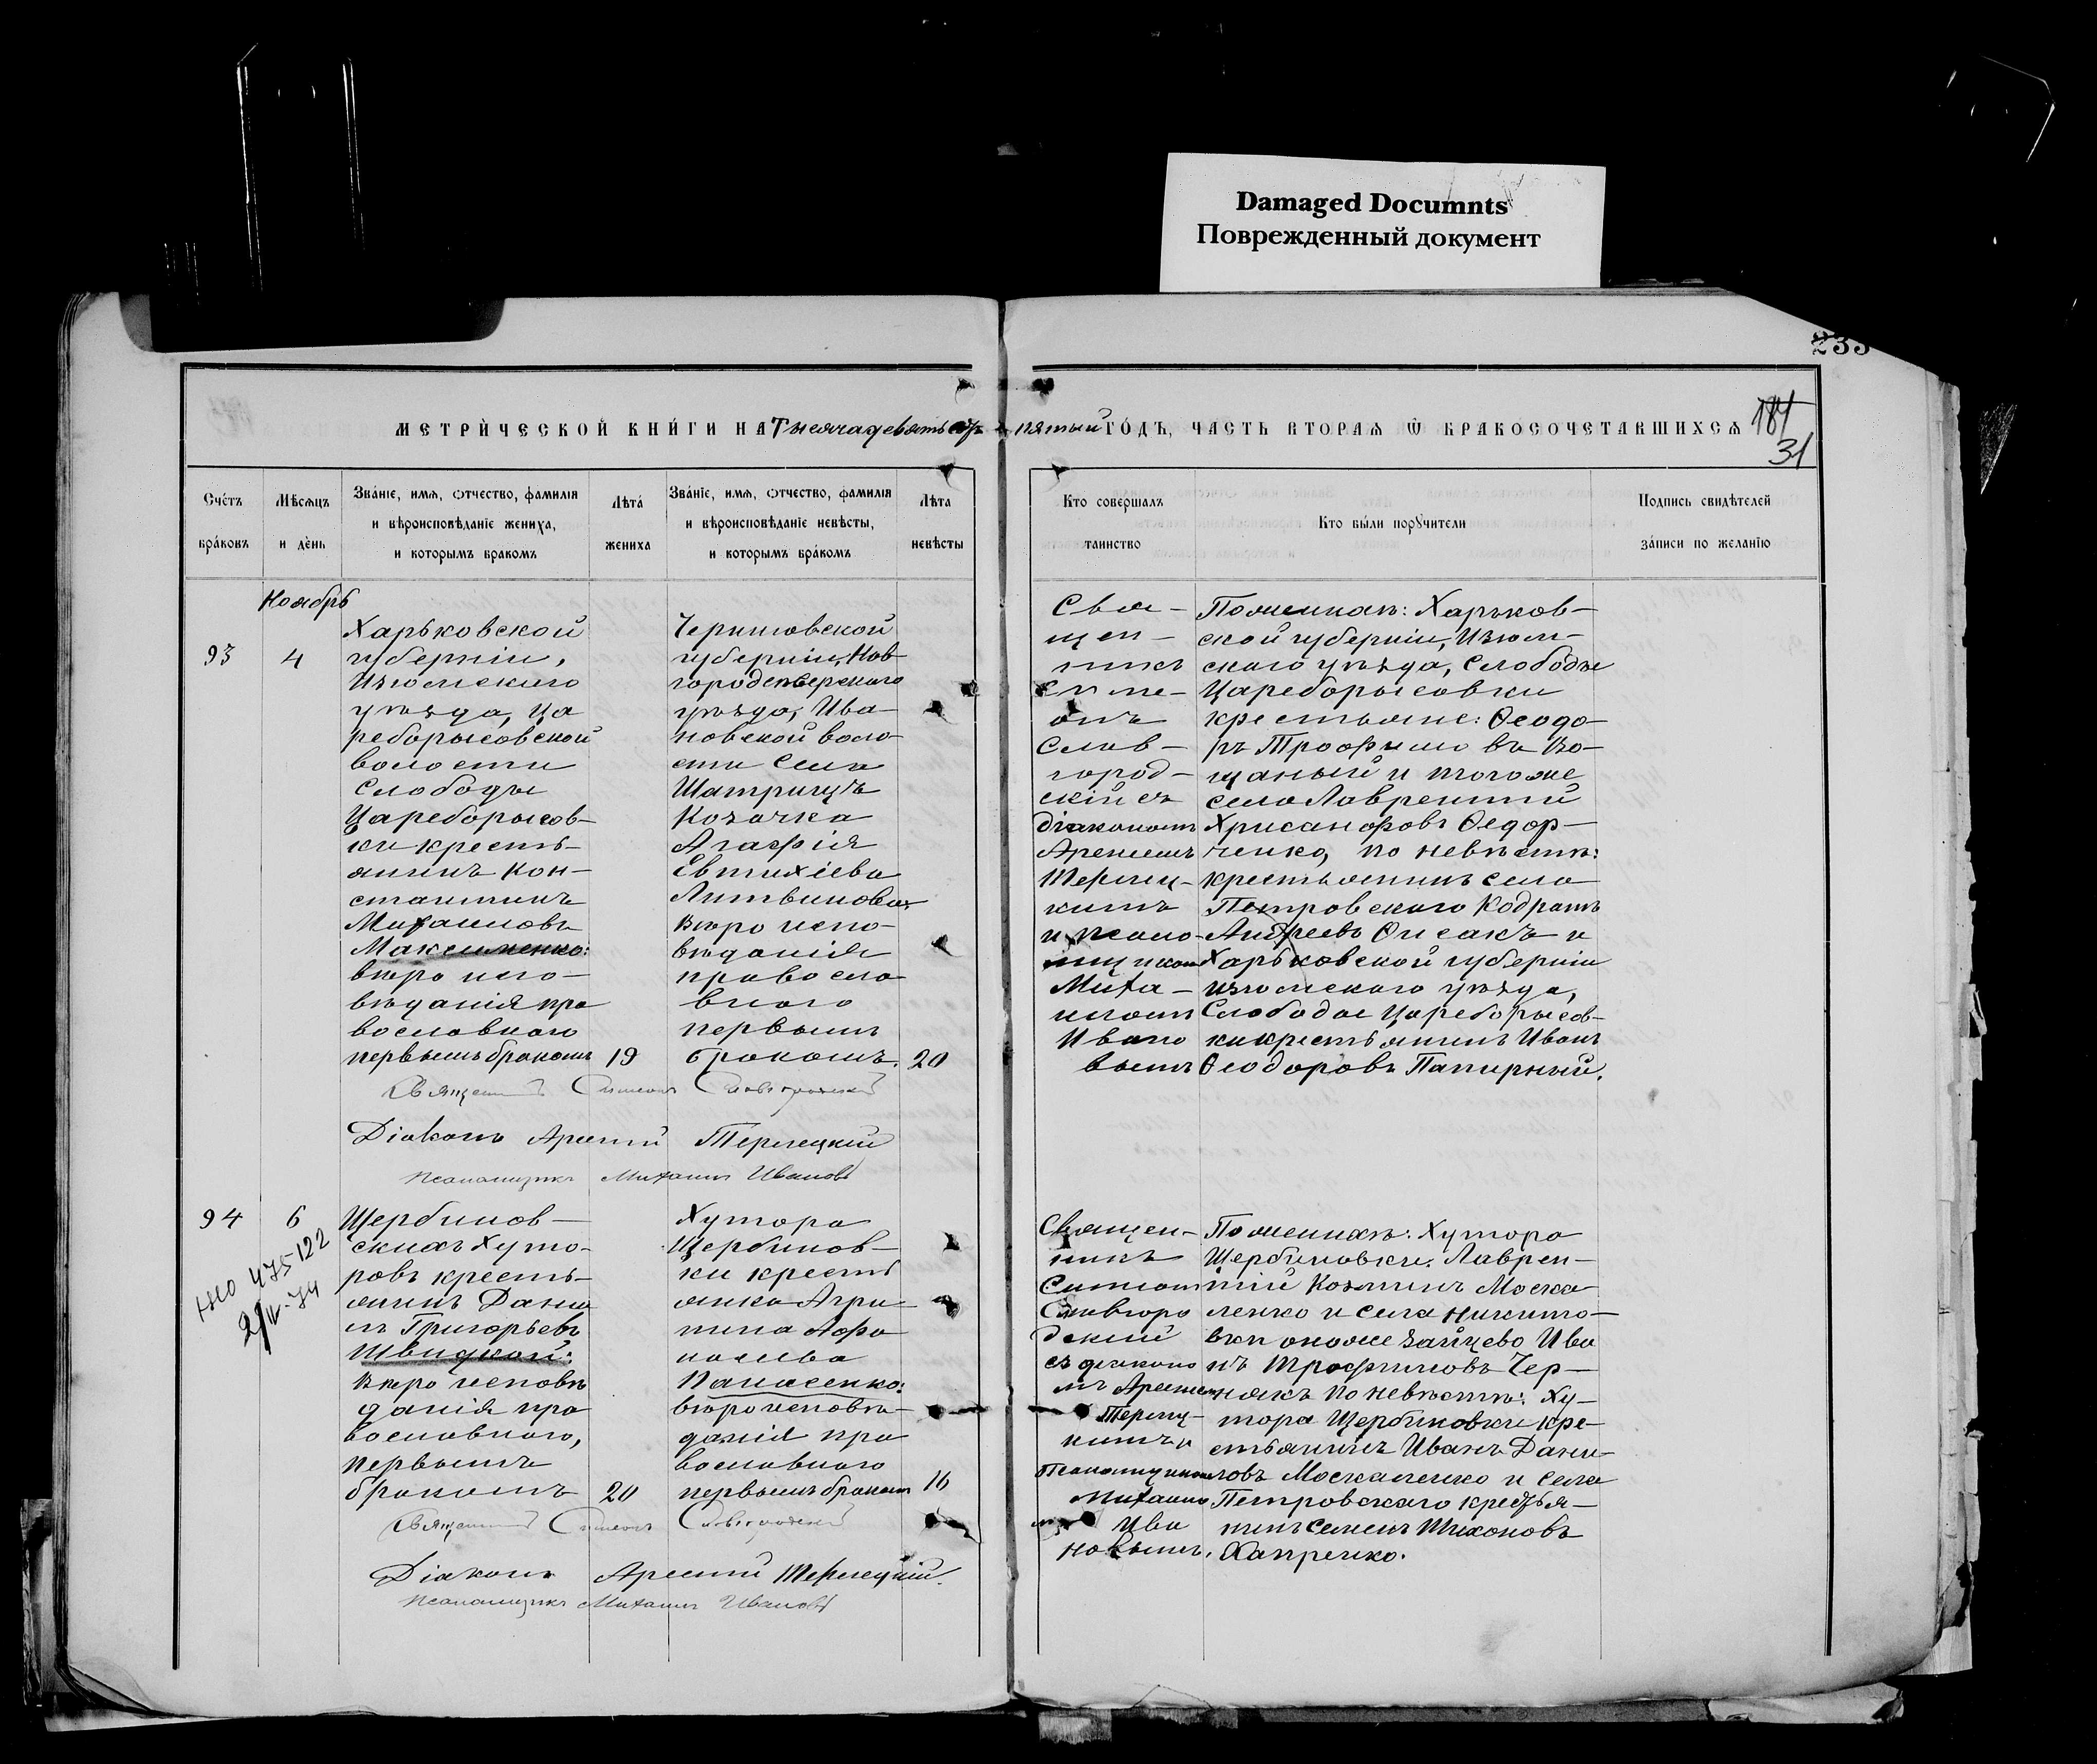 Damaged Documnts
Поврежденный документ
233
МЕТРИ́ЧЕСКОЙ КНИ́ГИ НА Тысяча девятьсотъ пятый ГО́ДЪ, ЧАСТЬ ВТОРАѦ Ѿ БРАКОСОЧЕТАВШИХСѦ
181
31
Сче́тъ бра́ковъ
Мѣ́сѧцъ и де́нь
Зва́нїе, имѧ, ѻтчество, фамилїѧ и вѣроисповѣ́данїе жениха, и которымъ бракомъ
Лѣта́ жениха
Зва́нїе, имѧ, ѻтчество, фамилїѧ и вѣроисповѣ́данїе невѣ́сты, и которымъ бра́комъ
Лѣта невѣ́сты
Кто совершалъ таинство
Кто бы́ли порꙋчители
Подпись свидѣ́телей за́писи по желанїю
Ноябрь
93
4
Харьковской
губерніи,
Изюмскаго
уѣзда, Ца
реборисовской
волости
Слободы
Цареборисов-
ки кресть-
янинъ Кон-
стантинъ
Михаиловъ
Максименко:
вѣро испо-
вѣданія пра
вославнаго
первымъ бракомъ
19
Черниговской
губерніи, Нов
городсѣверскаго
уѣзда, Ива-
новской воло-
сти села
Шатрищъ
Козачка
Агафія
Евтихіева
Литвинова:
вѣро испо-
вѣданія
правосла
внаго
первымъ
бракомъ.
20
Свя-
щен-
никъ
Симе-
онъ
Слав-
город-
скій съ
діакономъ
Арсеніемъ
Терлец-
кимъ
и псало-
мщикомъ
Миха-
иломъ
Ивано
вымъ
По женихѣ: Харьков-
ской губерніи, Изюм-
скаго уѣзда, Слободы
Цареборисовки
крестьяне: Ѳеодо-
ръ Трофимовъ Во-
щаный и тогоже
села Лаврентій
Хрисанфовъ Ѳедор-
ченко, по невѣстѣ:
крестьянинъ села
Петровскаго Кодратъ
Андреевъ Онсакъ и
Харьковской губерніи
Изюмскаго уѣзда,
Слободы Цареборисов-
ки крестьянинъ Иванъ
Ѳеодоровъ Папирный.
Священникъ Симеонъ Славгородскій
Діаконъ Арсеній Терлецкій
Псаломщикъ Михаилъ Ивановъ
94
6
НЮ 475122
2/IV-74
Щербинов-
скихъ Хуто-
ровъ кресть-
янинъ Дании
лъ Григорьевъ
Швидкой:
вѣро исповѣ
данія пра
вославнаго,
первымъ
бракомъ
20
Хутора
Щербинов-
ки кресть
янка Агри-
пина Афа
насіева
Панасенко:
вѣро исповѣ-
данія пра
вославнаго
первымъ бракомъ
16
Священ-
никъ
Симеонъ
Славгоро
дскій
съ діаконо
мъ Арсеніем
Терлец-
кимъ и
Псаломщиком
Михаило
мъ Ива
новымъ.
По женихѣ: Хутора
Щербиновки. Лаврен-
тій Козминъ Моска
ленко и села Никито-
вки оноже Зайцево Ива
нъ Трофимовъ Чер-
някъ по невѣстѣ: Ху-
тора Щербиновки кре-
стьянинъ Иванъ Дани-
ловъ Москаленко и села
Петровскаго крестья-
нинъ Семенъ Тихоновъ
Хапренко.
Священникъ Симеонъ Славгородскій
Діаконъ Арсеній Терлецкій.
Псаломщикъ Михаилъ Ивановъ